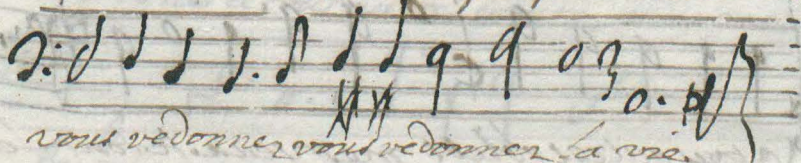 vous redonner vous redonner la vie.